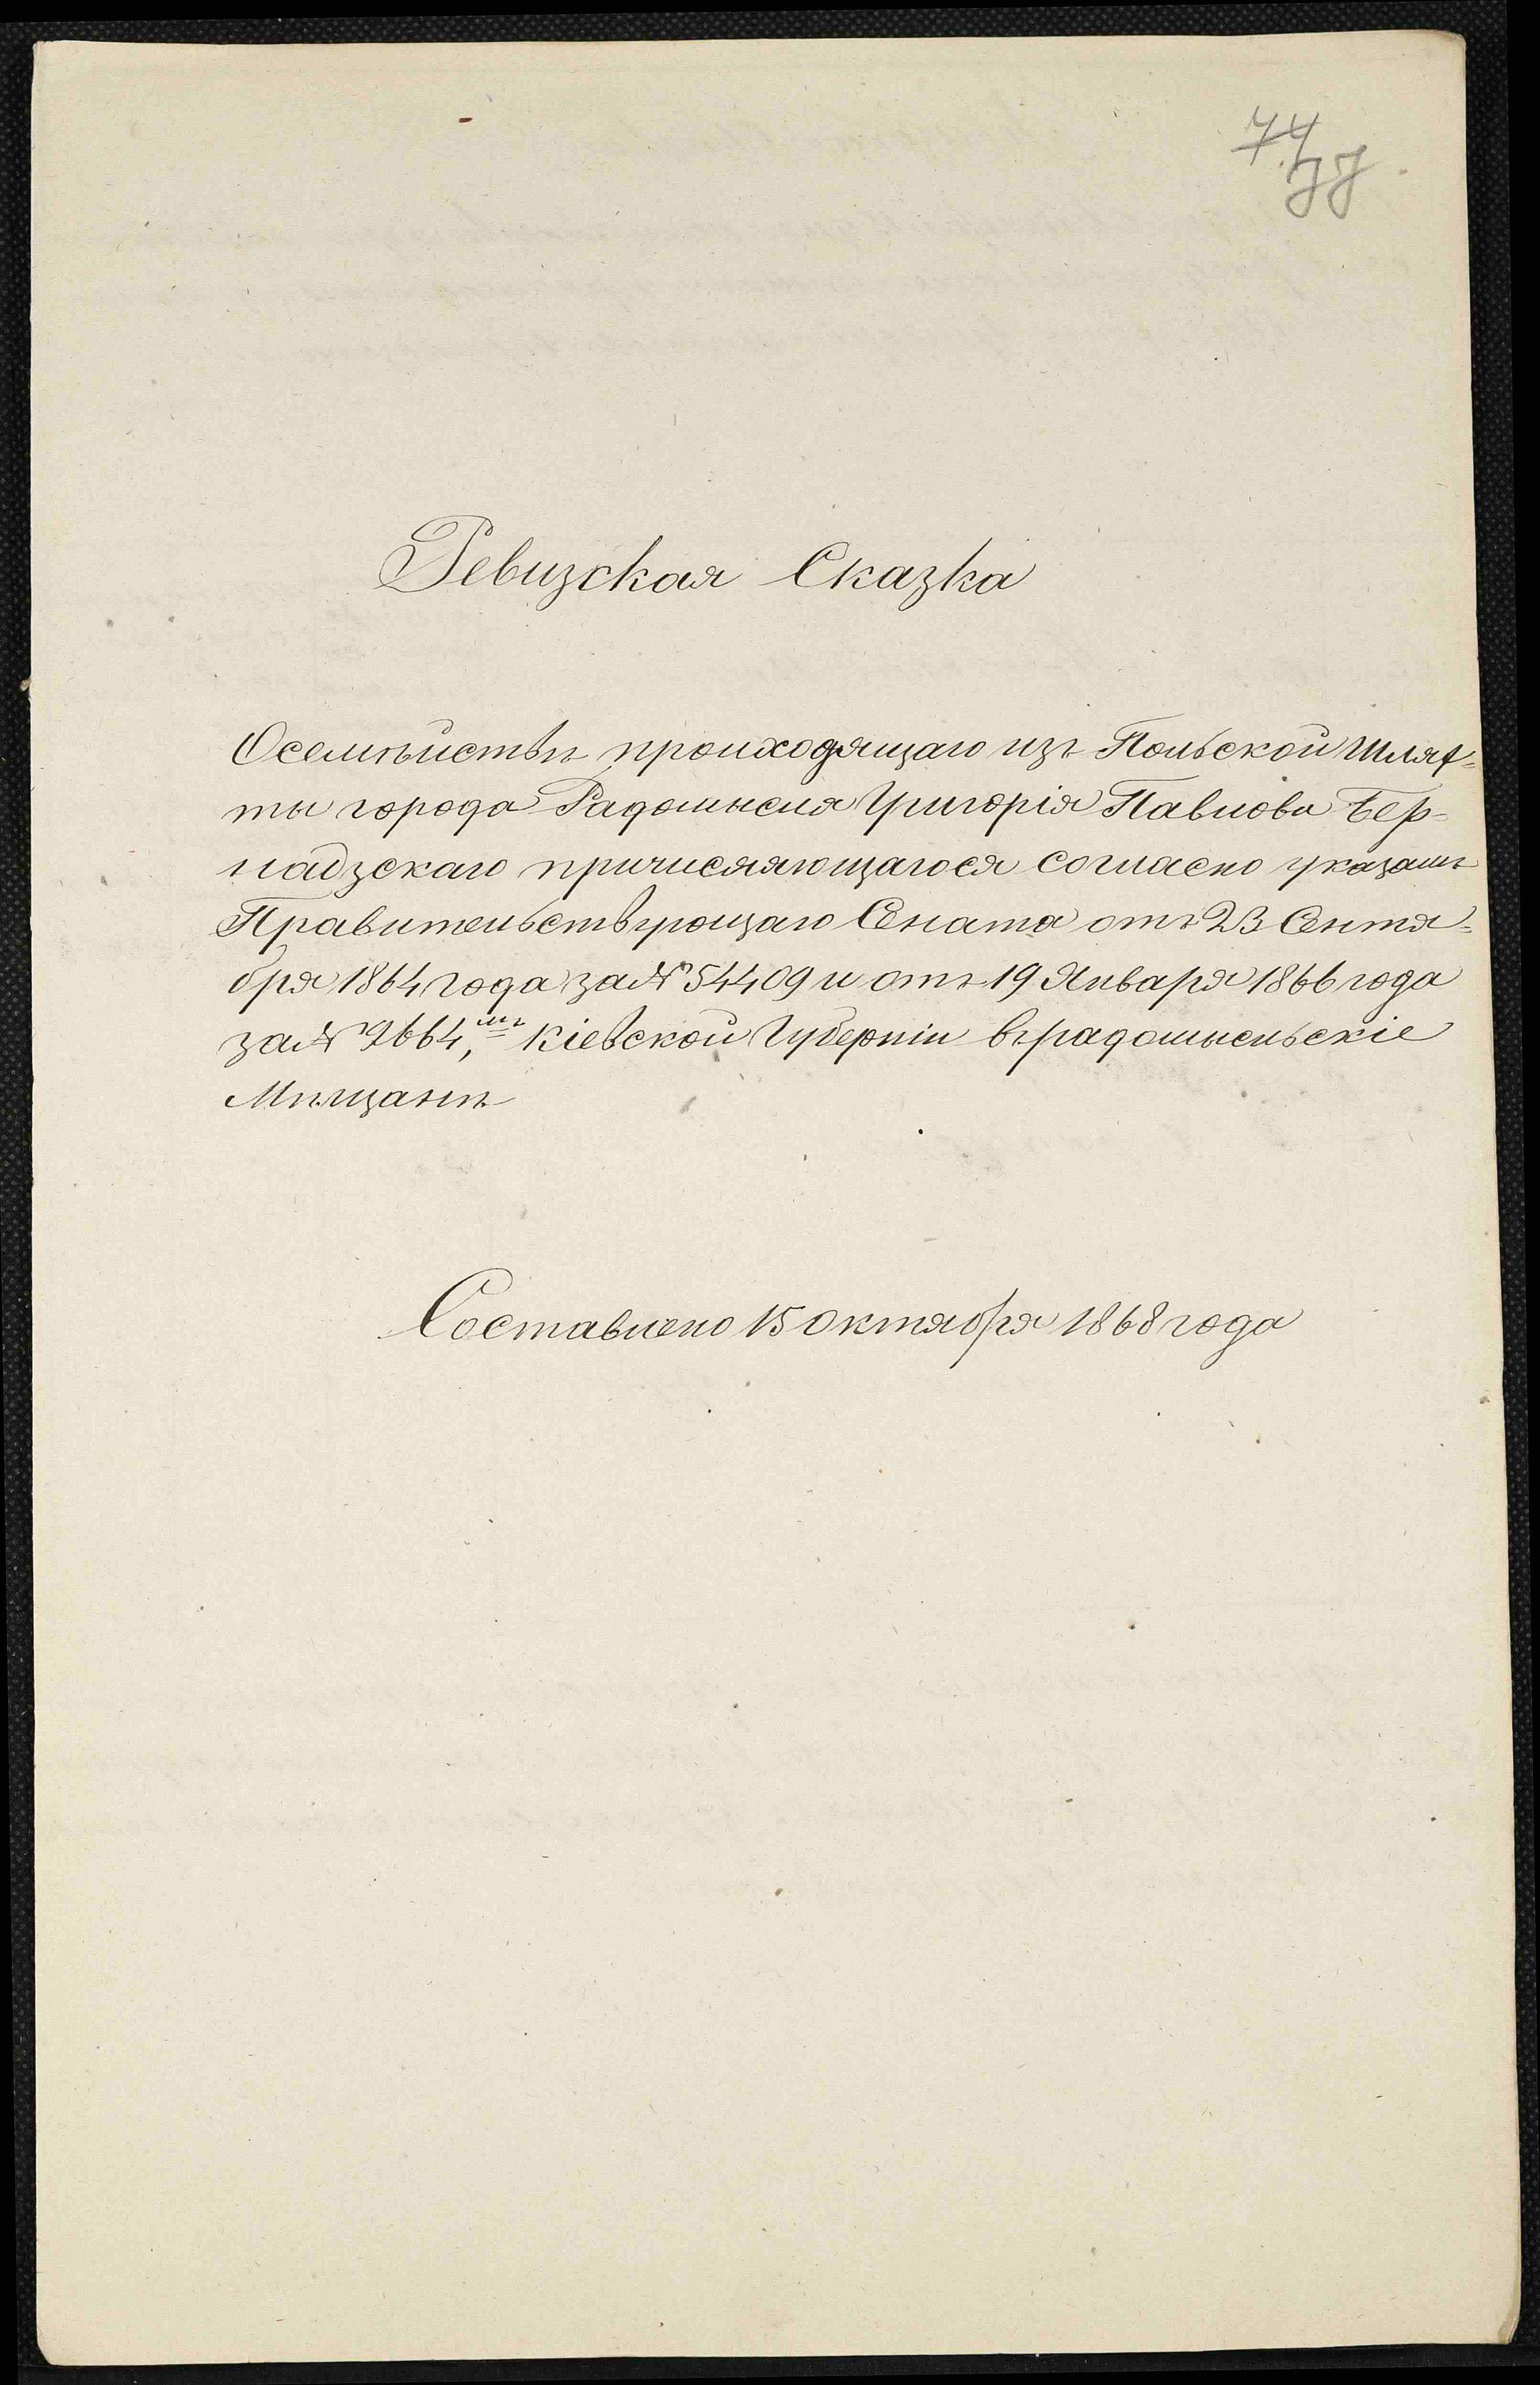 74
77
Ревизская Сказка
Осемѣйствѣ происходящаго изъ Польской Шлях-
ты города Радомысля Григорія Павлова Бер-
надзскаго причисляющагося согласно указамъ
Правительствующаго Сената отъ 23 Сентя-
бря 1864 года за № 54409 и отъ 19 Января 1866 года
за № 2664,мъ Кіевской Губерніи въ радомысльскіе
Мѣщанѣ
Составлено 15 Октября 1868 года